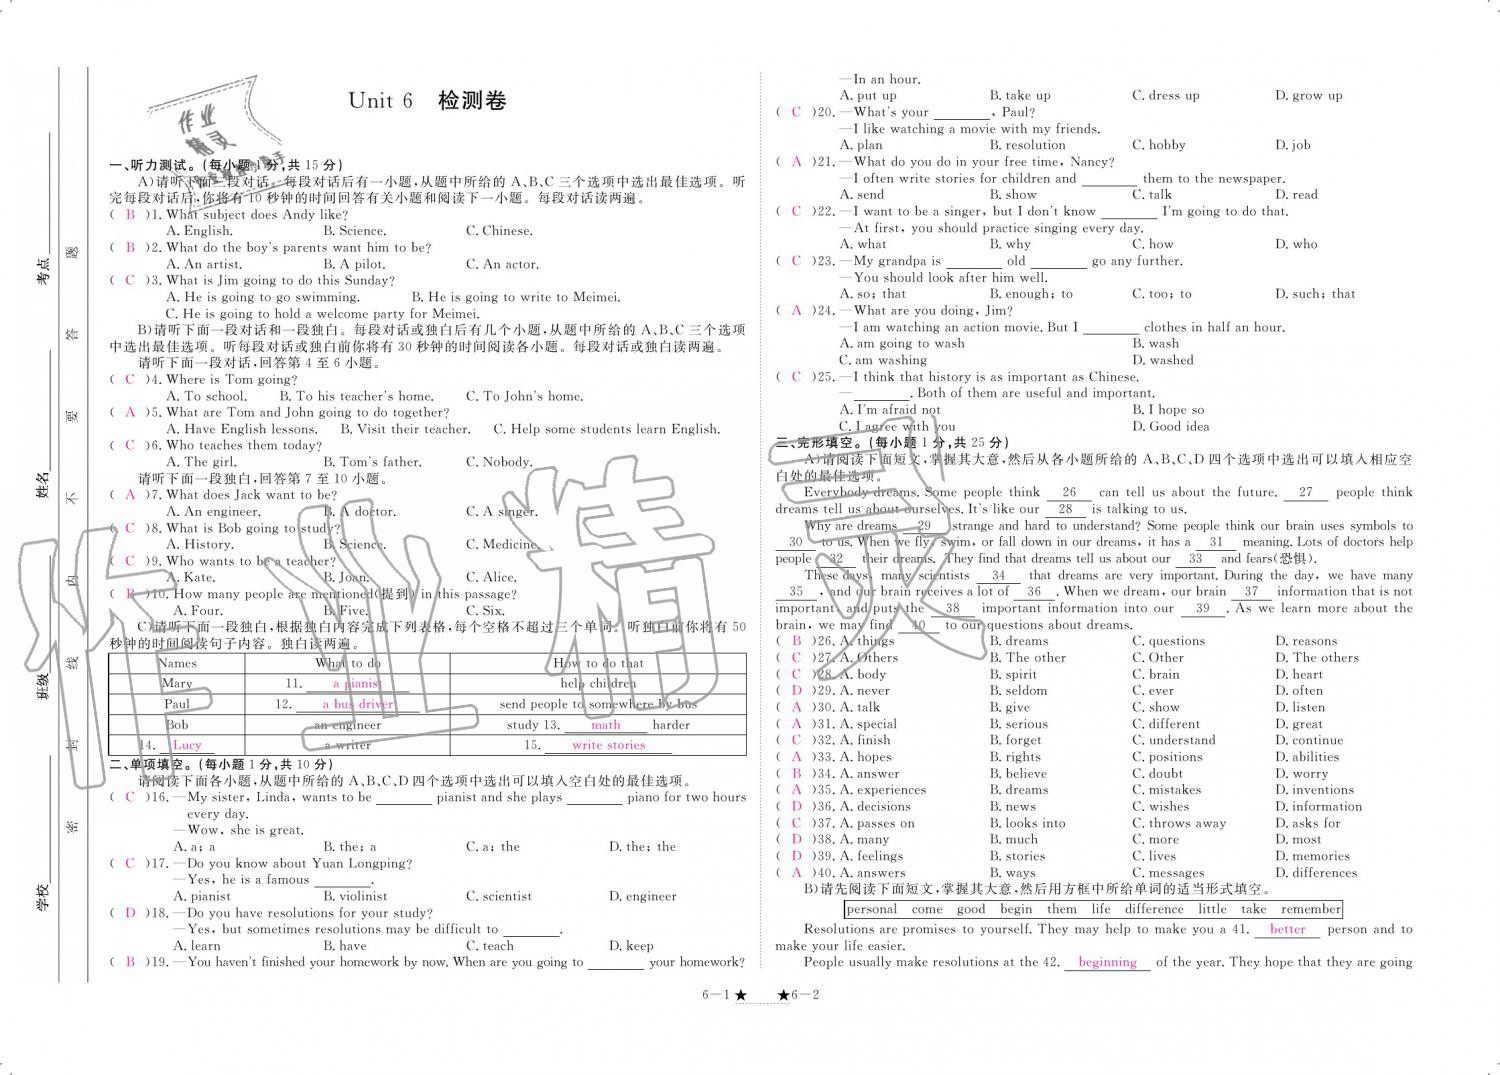 Unit 6 检测卷
一、听力测试。(每小题 1 分,共 15 分)
A)请听下面三段对话。每段对话后有一小题,从题中所给的 A、B、C 三个选项中选出最佳选项。听
完每段对话后,你将有 10 秒钟的时间回答有关小题和阅读下一小题。每段对话读两遍。
( B )1. What subject does Andy like?
A. English. B. Science. C. Chinese.
( B )2. What do the boy's parents want him to be?
A. An artist. B. A pilot. C. An actor.
( C )3. What is Jim going to do this Sunday?
A. He is going to go swimming. B. He is going to write to Meimei.
C. He is going to hold a welcome party for Meimei.
B)请听下面一段对话和一段独白。每段对话或独白后有几个小题,从题中所给的 A、B、C 三个选项
中选出最佳选项。听每段对话或独白前你将有 30 秒钟的时间阅读各小题。每段对话或独白读两遍。
请听下面一段对话,回答第 4 至 6 小题。
( C )4. Where is Tom going?
A. To school. B. To his teacher's home. C. To John's home.
( A )5. What are Tom and John going to do together?
A. Have English lessons. B. Visit their teacher. C. Help some students learn English.
( C )6. Who teaches them today?
A. The girl. B. Tom's father. C. Nobody.
请听下面一段独白,回答第 7 至 10 小题。
( A )7. What does Jack want to be?
A. An engineer. B. A doctor. C. A singer.
( C )8. What is Bob going to study?
A. History. B. Science. C. Medicine.
( C )9. Who wants to be a teacher?
A. Kate. B. Joan. C. Alice.
( B )10. How many people are mentioned(提到) in this passage?
A. Four. B. Five. C. Six.
C)请听下面一段独白,根据独白内容完成下列表格,每个空格不超过三个单词。听独白前你将有 50
秒钟的时间阅读句子内容。独白读两遍。
Names What to do How to do that
Mary 11. a pianist help children
Paul 12. a bus driver send people to somewhere by bus
Bob an engineer study 13. math harder
14. Lucy a writer 15. write stories
二、单项填空。(每小题 1 分,共 10 分)
请阅读下面各小题,从题中所给的 A、B、C、D 四个选项中选出可以填入空白处的最佳选项。
( C )16. —My sister, Linda, wants to be ________ pianist and she plays ________ piano for two hours
every day.
—Wow, she is great.
A. a; a B. the; a C. a; the D. the; the
( C )17. —Do you know about Yuan Longping?
—Yes, he is a famous ________.
A. pianist B. violinist C. scientist D. engineer
( D )18. —Do you have resolutions for your study?
—Yes, but sometimes resolutions may be difficult to ________.
A. learn B. have C. teach D. keep
( B )19. —You haven't finished your homework by now. When are you going to ________ your homework?
6—1★
—In an hour.
A. put up B. take up C. dress up D. grow up
( C )20. —What's your ________, Paul?
—I like watching a movie with my friends.
A. plan B. resolution C. hobby D. job
( A )21. —What do you do in your free time, Nancy?
—I often write stories for children and ________ them to the newspaper.
A. send B. show C. talk D. read
( C )22. —I want to be a singer, but I don't know ________ I'm going to do that.
—At first, you should practice singing every day.
A. what B. why C. how D. who
( C )23. —My grandpa is ________ old ________ go any further.
—You should look after him well.
A. so; that B. enough; to C. too; to D. such; that
( A )24. —What are you doing, Jim?
—I am watching an action movie. But I ________ clothes in half an hour.
A. am going to wash B. wash
C. am washing D. washed
( C )25. —I think that history is as important as Chinese.
—________. Both of them are useful and important.
A. I'm afraid not B. I hope so
C. I agree with you D. Good idea
三、完形填空。(每小题 1 分,共 25 分)
A)请阅读下面短文,掌握其大意,然后从各小题所给的 A、B、C、D 四个选项中选出可以填入相应空
白处的最佳选项。
Everybody dreams. Some people think 26 can tell us about the future. 27 people think
dreams tell us about ourselves. It's like our 28 is talking to us.
Why are dreams 29 strange and hard to understand? Some people think our brain uses symbols to
30 to us. When we fly, swim, or fall down in our dreams, it has a 31 meaning. Lots of doctors help
people 32 their dreams. They find that dreams tell us about our 33 and fears(恐惧).
These days, many scientists 34 that dreams are very important. During the day, we have many
35 , and our brain receives a lot of 36 . When we dream, our brain 37 information that is not
important, and puts the 38 important information into our 39 . As we learn more about the
brain, we may find 40 to our questions about dreams.
( B )26. A. things B. dreams C. questions D. reasons
( C )27. A. Others B. The other C. Other D. The others
( C )28. A. body B. spirit C. brain D. heart
( D )29. A. never B. seldom C. ever D. often
( A )30. A. talk B. give C. show D. listen
( A )31. A. special B. serious C. different D. great
( C )32. A. finish B. forget C. understand D. continue
( A )33. A. hopes B. rights C. positions D. abilities
( B )34. A. answer B. believe C. doubt D. worry
( A )35. A. experiences B. dreams C. mistakes D. inventions
( D )36. A. decisions B. news C. wishes D. information
( C )37. A. passes on B. looks into C. throws away D. asks for
( D )38. A. many B. much C. more D. most
( D )39. A. feelings B. stories C. lives D. memories
( A )40. A. answers B. ways C. messages D. differences
B)请先阅读下面短文,掌握其大意,然后用方框中所给单词的适当形式填空。
personal come good begin them life difference little take remember
Resolutions are promises to yourself. They may help to make you a 41. better person and to
make your life easier.
People usually make resolutions at the 42. beginning of the year. They hope that they are going
★6—2
考点
姓名
班级
学校
题
答
要
不
内
线
封
密
作业
精灵
作业精灵